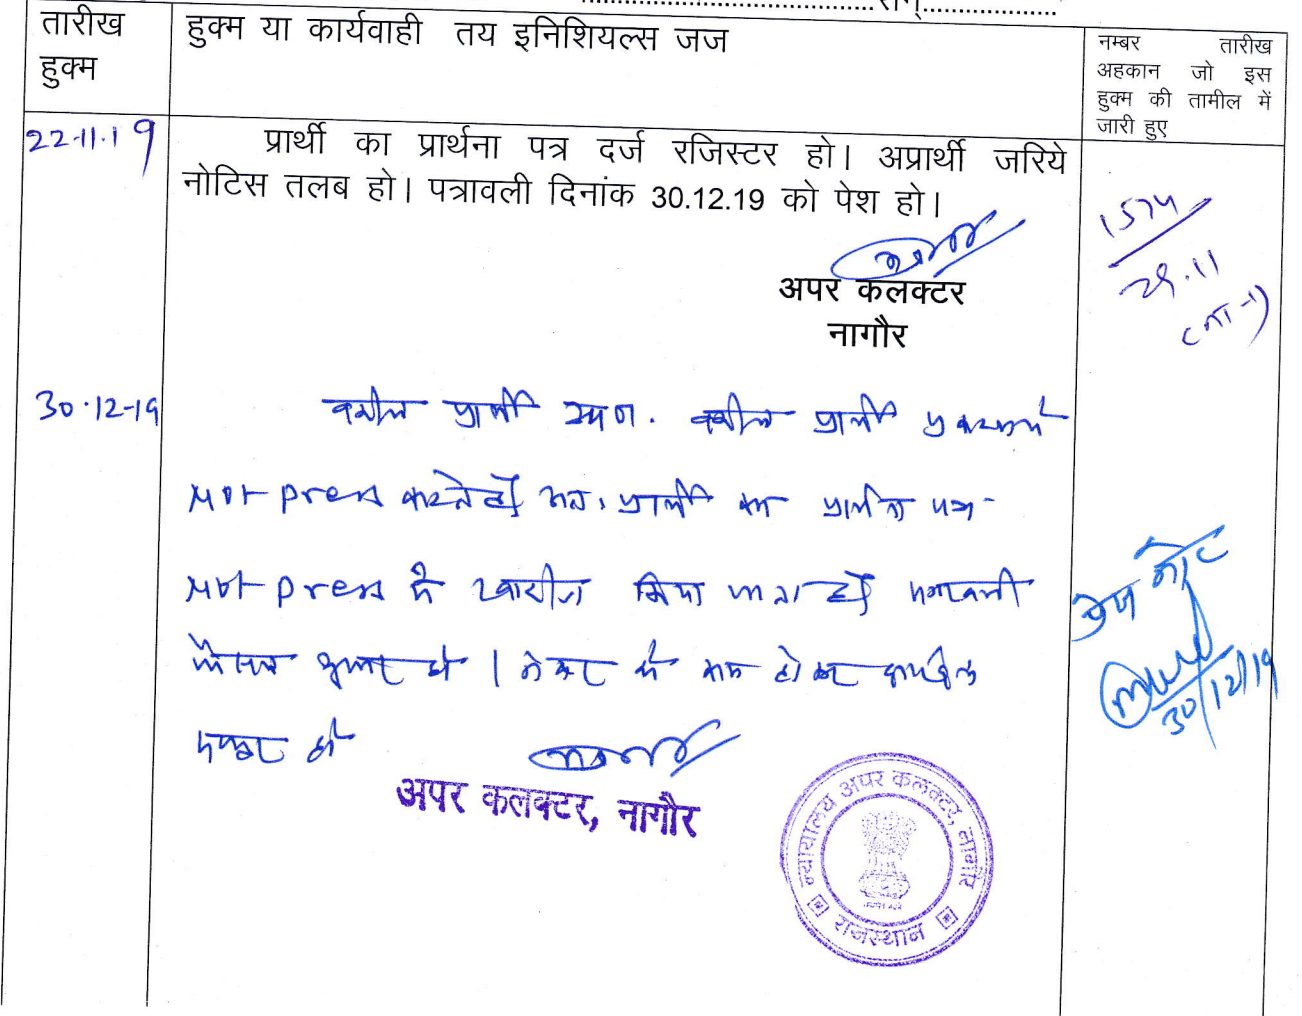 तारीख हुक्म
हुक्म या कार्यवाही तय इनिशियल्स जज
नम्बर तारीख
अहकान जो इस
हुक्म की तामील में
जारी हुए
22.11.19
प्रार्थी का प्रार्थना पत्र दर्ज रजिस्टर हो। अप्रार्थी जरिये
नोटिस तलब हो। पत्रावली दिनांक 30.12.19 को पेश हो।
1574
29.11
अपर कलक्टर
नागौर
30.12-19
वकील प्रार्थी उप०. वकील प्रार्थी प्रकरण में
Not press करते हैं अतः प्रार्थी का प्रार्थना पत्र
Not press में खारीज किया जाता है पत्रावली
फैसल शुमार हो। नम्बर से कम होकर दाखिल
दफ्तर हो
30/12/19
अपर कलक्टर, नागौर
न्यायालय अपर कलक्टर, नागौर
राजस्थान